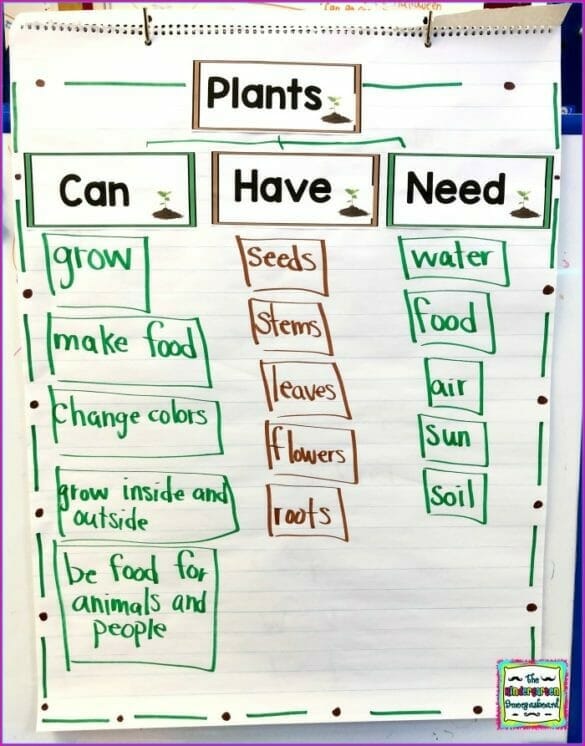 Plants
Can
Have
Need
grow
make food
change colors
grow inside and
outside
be food for
animals and
people
seeds
Stems
leaves
flowers
roots
water
food
air
sun
soil
the
Kindergarten
Smorgasboard